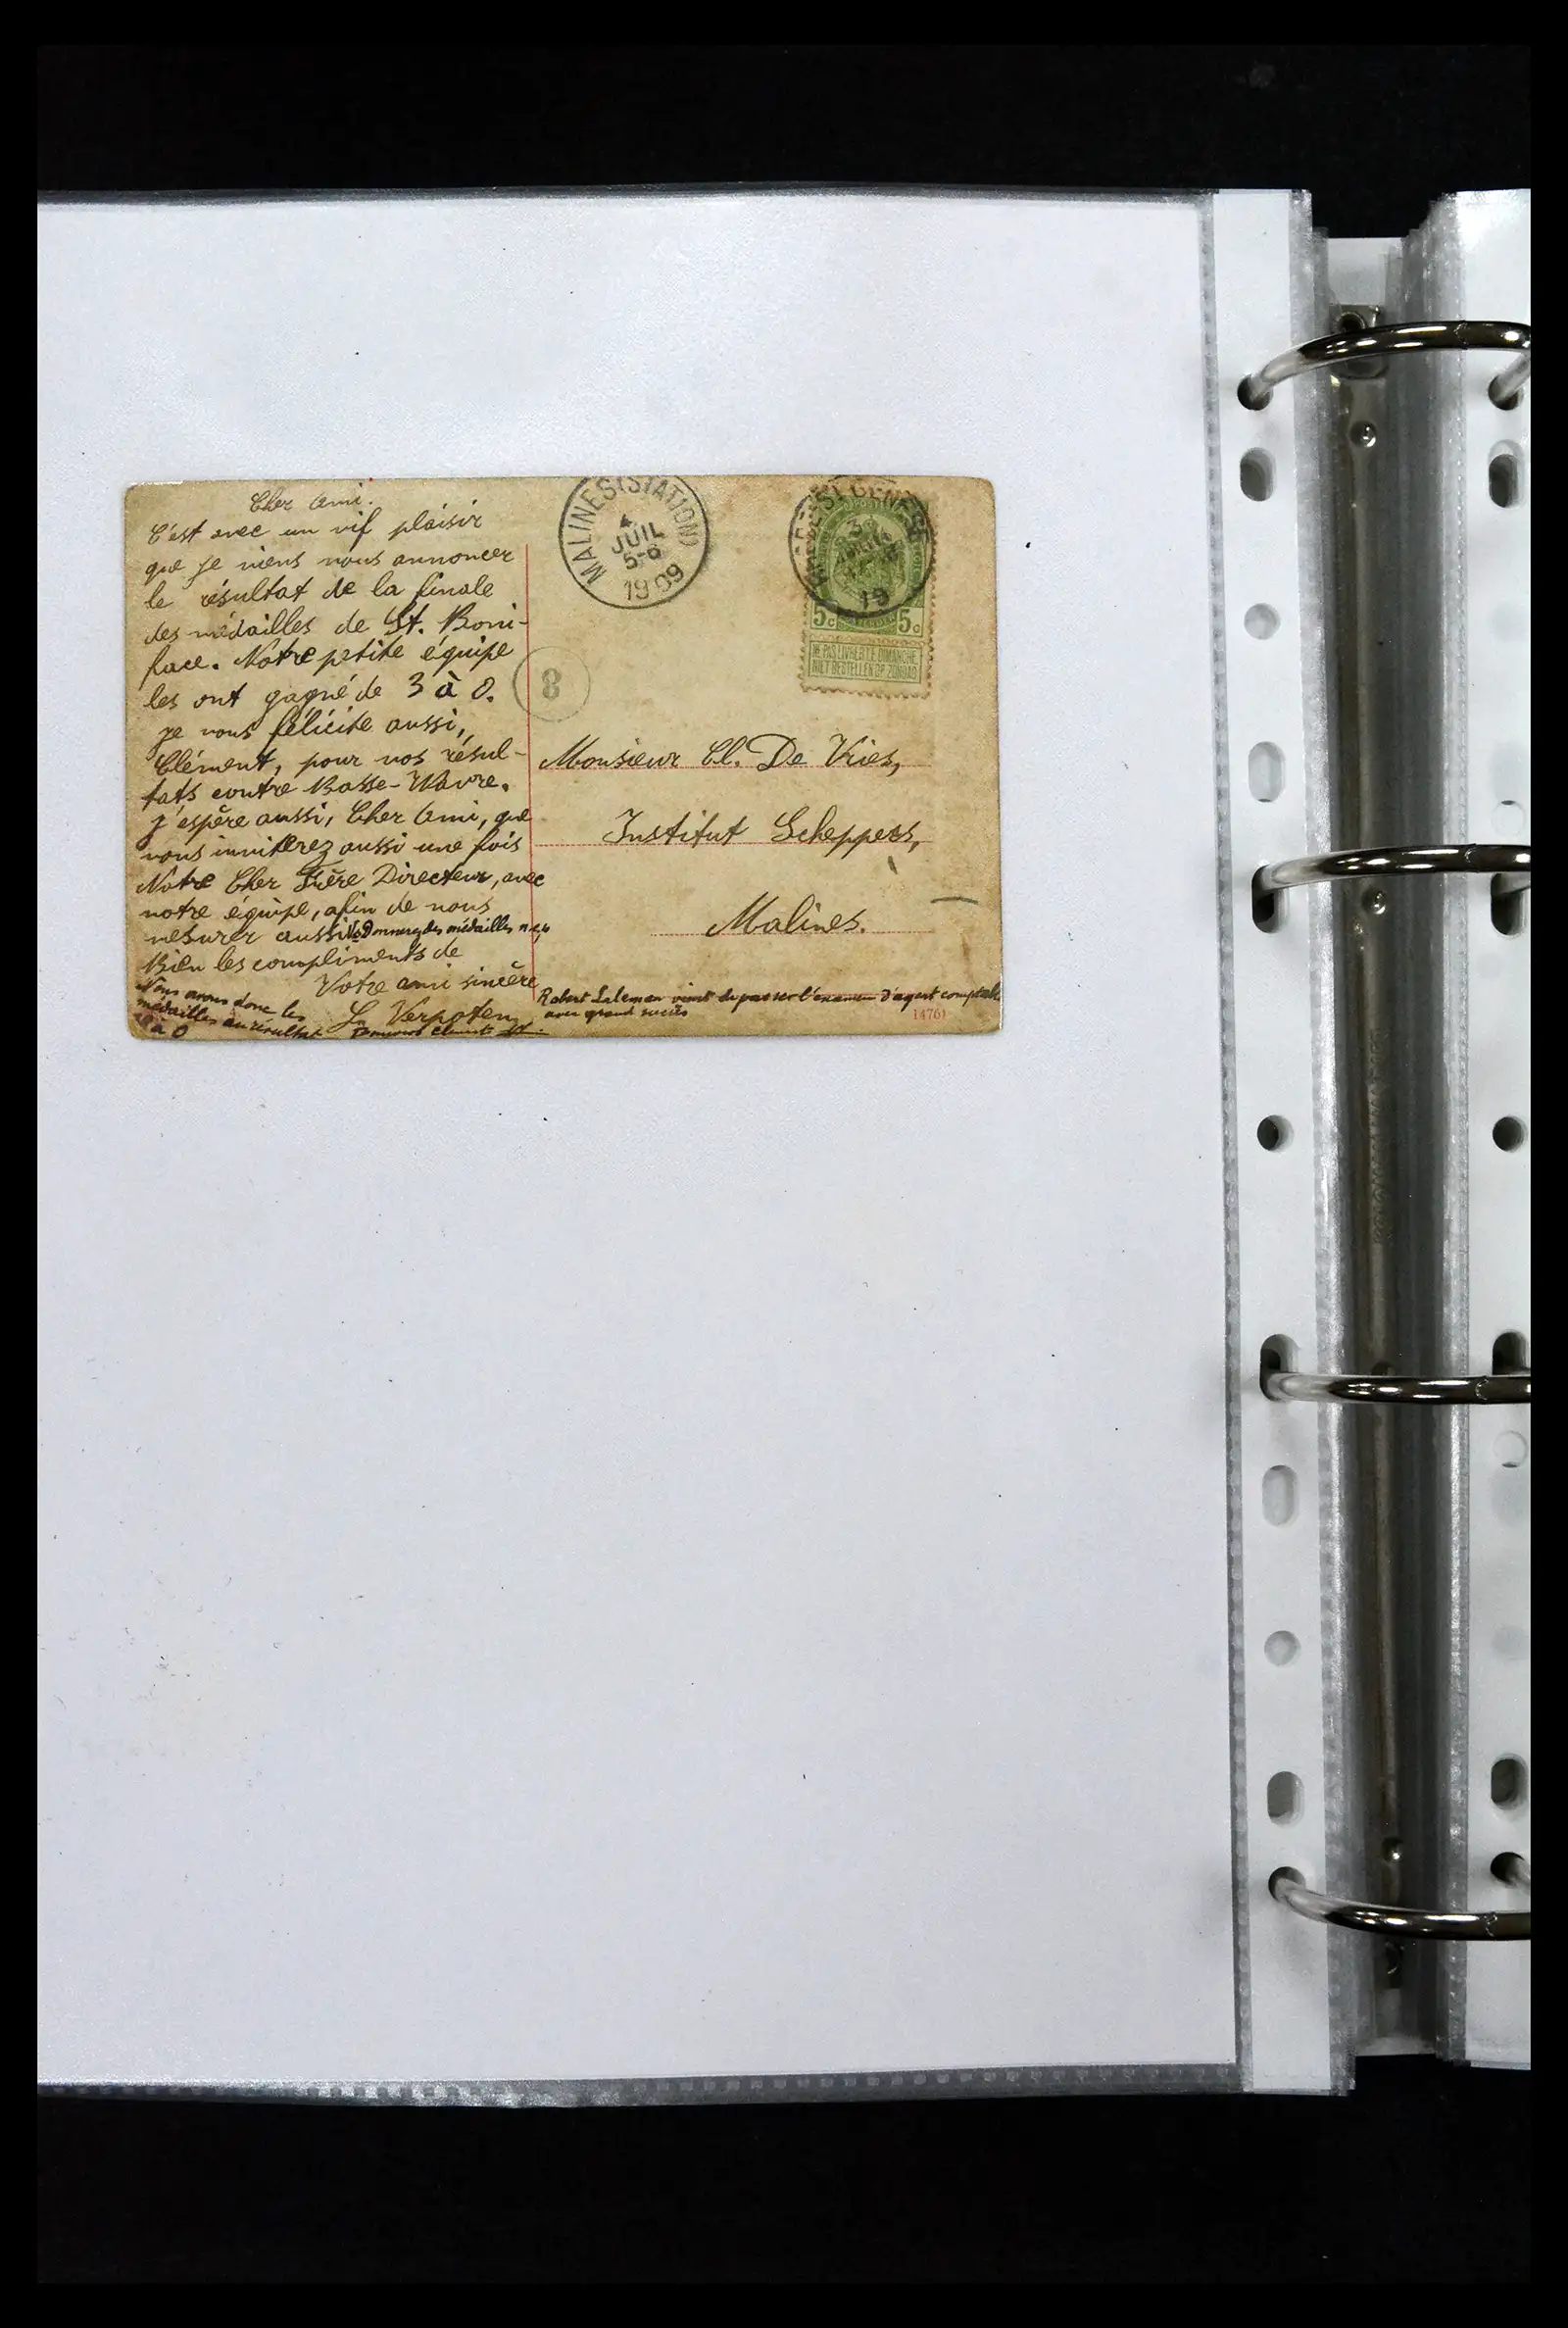 Cher Ami.
C'est avec un vif plaisir
que je viens vous annoncer
le résultat de la finale
des médailles de St. Boni-
face. Notre petite équipe
les ont gagné de 3 à 0.
je vous félicite aussi,
Clément, pour vos résul-
tats contre Basse-Wavre.
j'espère aussi, Cher Ami, que
vous inviterez aussi une fois
Notre Cher Frère Directeur, avec
notre équipe, afin de nous
mesurer aussi. Donnez des médailles
Bien les compliments de
Votre ami sincère
L. Verpoten
Nous avons donc les
médailles au résultat
à 0
MALINES (STATION)
4
JUIL
5-6
1909
ST GENESE
30
19
5c 5c
NE PAS LIVRER LE DIMANCHE
NIET BESTELLEN OP ZONDAG
8
Monsieur Cl. De Vries,
Institut Scheppers,
Malines.
Robert vient de passer l'examen d'agent comptable
avec grand succès
14761